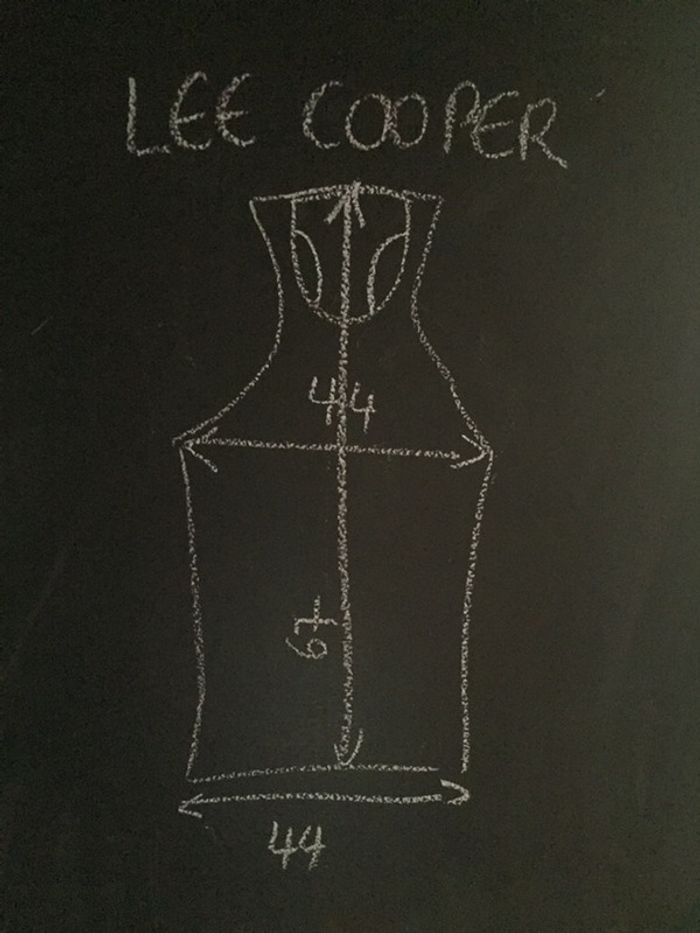 LEE COOPER
44
67
44